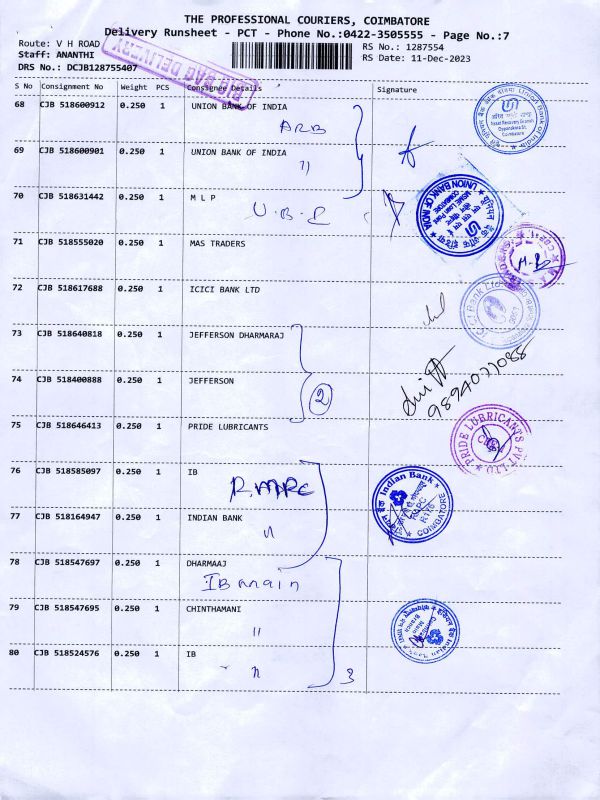 THE PROFESSIONAL COURIERS, COIMBATORE
Delivery Runsheet - PCT - Phone No.:0422-3505555 - Page No.:7
Route: V H ROAD
RS No.: 1287554
Staff: ANANTHI
RS Date: 11-Dec-2023
DRS No.: DCJB128755407
BIG BAG DELIVERY
S No Consignment No Weight PCS Consignee Details Signature
68 CJB 518600912 0.250 1 UNION BANK OF INDIA
ARB
Union Bank of India
Asset Recovery Branch
Oppanakara St.
Coimbatore
69 CJB 518600901 0.250 1 UNION BANK OF INDIA
"
70 CJB 518631442 0.250 1 M L P
U.B.I
UNION BANK OF INDIA
COIMBATORE
71 CJB 518555020 0.250 1 MAS TRADERS
72 CJB 518617688 0.250 1 ICICI BANK LTD
ICICI Bank Ltd
73 CJB 518640818 0.250 1 JEFFERSON DHARMARAJ
74 CJB 518400888 0.250 1 JEFFERSON
2
9894077088
75 CJB 518646413 0.250 1 PRIDE LUBRICANTS
PRIDE LUBRICANTS PVT LTD
76 CJB 518585097 0.250 1 IB
RMPC
Indian Bank
COIMBATORE
77 CJB 518164947 0.250 1 INDIAN BANK
"
78 CJB 518547697 0.250 1 DHARMAAJ
IB main
79 CJB 518547695 0.250 1 CHINTHAMANI
"
Indian Bank
80 CJB 518524576 0.250 1 IB
"
3